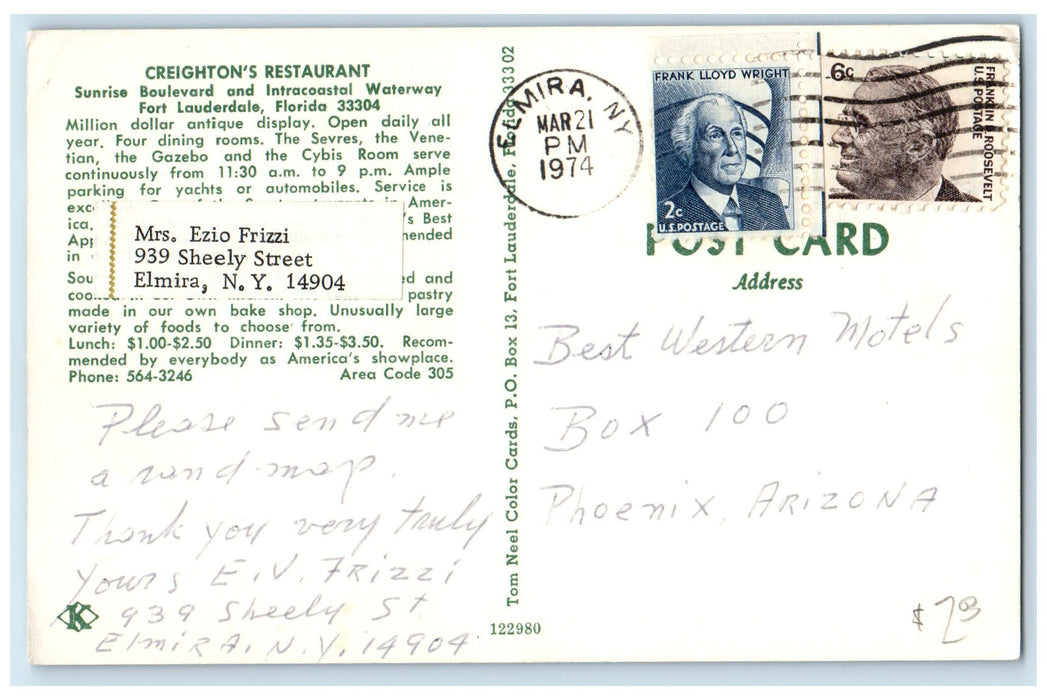 CREIGHTON'S RESTAURANT
Sunrise Boulevard and Intracoastal Waterway
Fort Lauderdale, Florida 33304
Million dollar antique display. Open daily all
year. Four dining rooms. The Sevres, the Vene-
tian, the Gazebo and the Cybis Room serve
continuously from 11:30 a.m. to 9 p.m. Ample
parking for yachts or automobiles. Service is
in Amer-
ica. 's Best
in
Mrs. Ezio Frizzi
939 Sheely Street
Elmira, N.Y. 14904
and
pastry
made in our own bake shop. Unusually large
variety of foods to choose from.
Lunch: $1.00-$2.50 Dinner: $1.35-$3.50. Recom-
mended by everybody as America's showplace.
Phone: 564-3246 Area Code 305
Please send me
a rand map.
Thank you very truly
Yours E.V. Frizzi
939 Sheely St
Elmira, N.Y. 14904
K
Tom Neel Color Cards, P.O. Box 13, Fort Lauderdale, Florida 33302
122980
ELMIRA, NY
MAR 21
PM
1974
FRANK LLOYD WRIGHT
2c
U.S. POSTAGE
6c
FRANKLIN D. ROOSEVELT
U.S. POSTAGE
POST CARD
Address
Best Western Motels
Box 100
Phoenix, ARIZONA